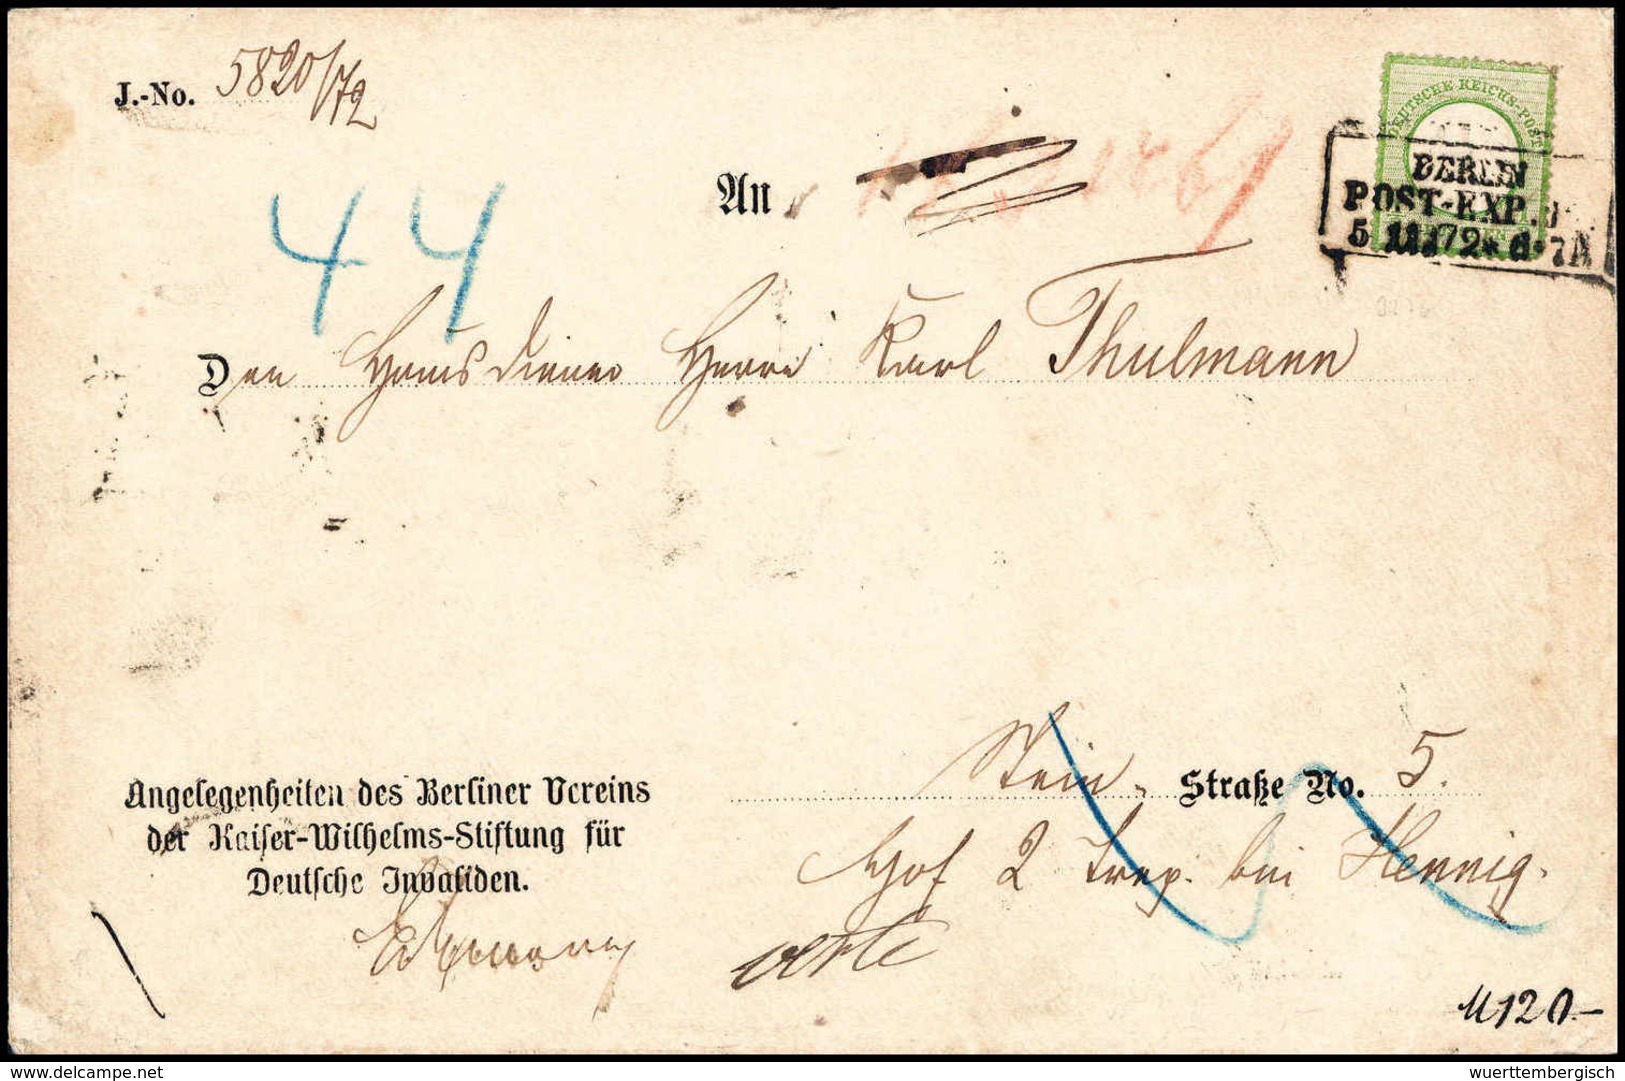 J.-No. 5820/72
DEUTSCHE REICHS-POST
44
An
BERLIN
POST-EXP.
5 72 * 6-7A
Den Hausdiener Herrn Karl Thulmann
Stein Straße No. 5.
Angelegenheiten des Berliner Vereins
der Kaiser-Wilhelms-Stiftung für
Deutsche Invaliden.
Hof 2 Trep. bei Hennig.
M 120.-
delcampe.net
wuerttembergisch